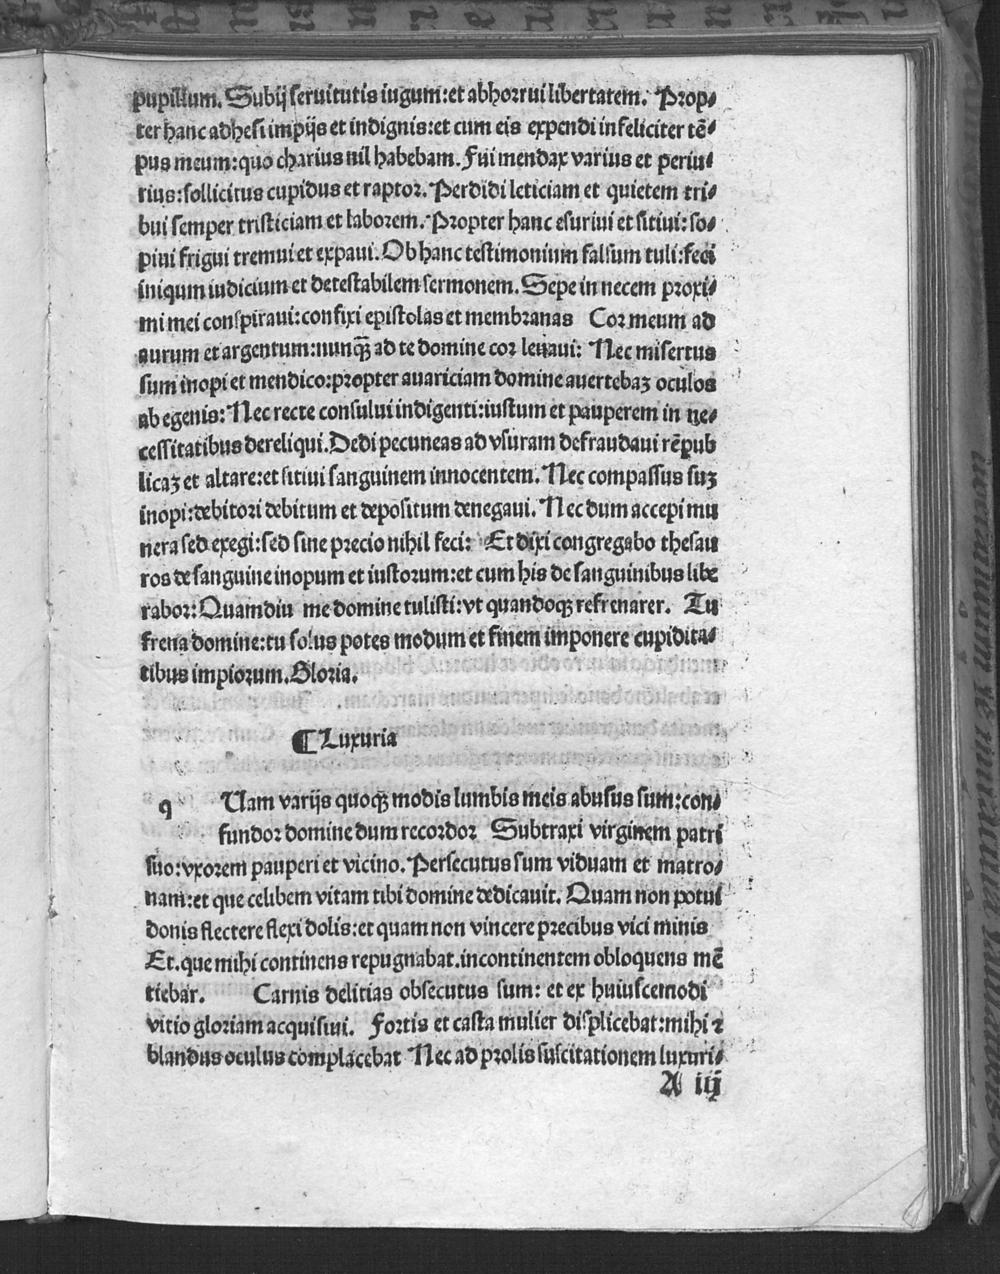 pupillum. Subij seruitutis iugum: et abhorrui libertatem. Prop⸗
ter hanc adhesi impijs et indignis: et cum eis expendi infeliciter tē⸗
pus meum: quo charius nil habebam. Fui mendax varius et periu⸗
rius: sollicitus cupidus et raptor. Perdidi leticiam et quietem tri⸗
bui semper tristiciam et laborem. Propter hanc esuriui et sitiui: so⸗
piui frigui tremui et expaui. Ob hanc testimonium falsum tuli: feci
iniqum iudicium et detestabilem sermonem. Sepe in necem proxi⸗
mi mei conspiraui: confixi epistolas et membranas Cor meum ad
aurum et argentum: nunqꝫ̄ ad te domine cor leuaui: Nec misertus
sum inopi et mendico: propter auariciam domine auertebaꝫ oculos
ab egenis: Nec recte consului indigenti: iustum et pauperem in ne⸗
cessitatibus dereliqui. Dedi pecuneas ad vsuram defraudaui rēpub
licaꝫ et altare: et sitiui sanguinem innocentem. Nec compassus suꝫ
inopi: debitori debitum et depositum denegaui. Nec dum accepi mu
nera sed exegi: sed sine precio nihil feci: Et dixi congregabo thesau
ros de sanguine inopum et iustorum: et cum his de sanguinibus libe
rabor: Quamdiu me domine tulisti: vt quandoqꝫ refrenarer. Tu
frena domine: tu solus potes modum et finem imponere cupidita⸗
tibus impiorum. Gloria.
¶ Luxuria
q Uam varijs quoqꝫ modis lumbis meis abusus sum: con⸗
fundor domine dum recordor Subtraxi virginem patri
suo: vxorem pauperi et vicino. Persecutus sum viduam et matro⸗
nam: et que celibem vitam tibi domine dedicauit. Quam non potui
donis flectere flexi dolis: et quam non vincere precibus vici minis
Et. que mihi continens repugnabat. incontinentem obloquens mē
tiebar. Carnis delitias obsecutus sum: et ex huiuscemodi
vitio gloriam acquisiui. Fortis et casta mulier displicebat: mihi ⁊
blandus oculus complacebat Nec ad prolis suscitationem luxuri⸗
A iij